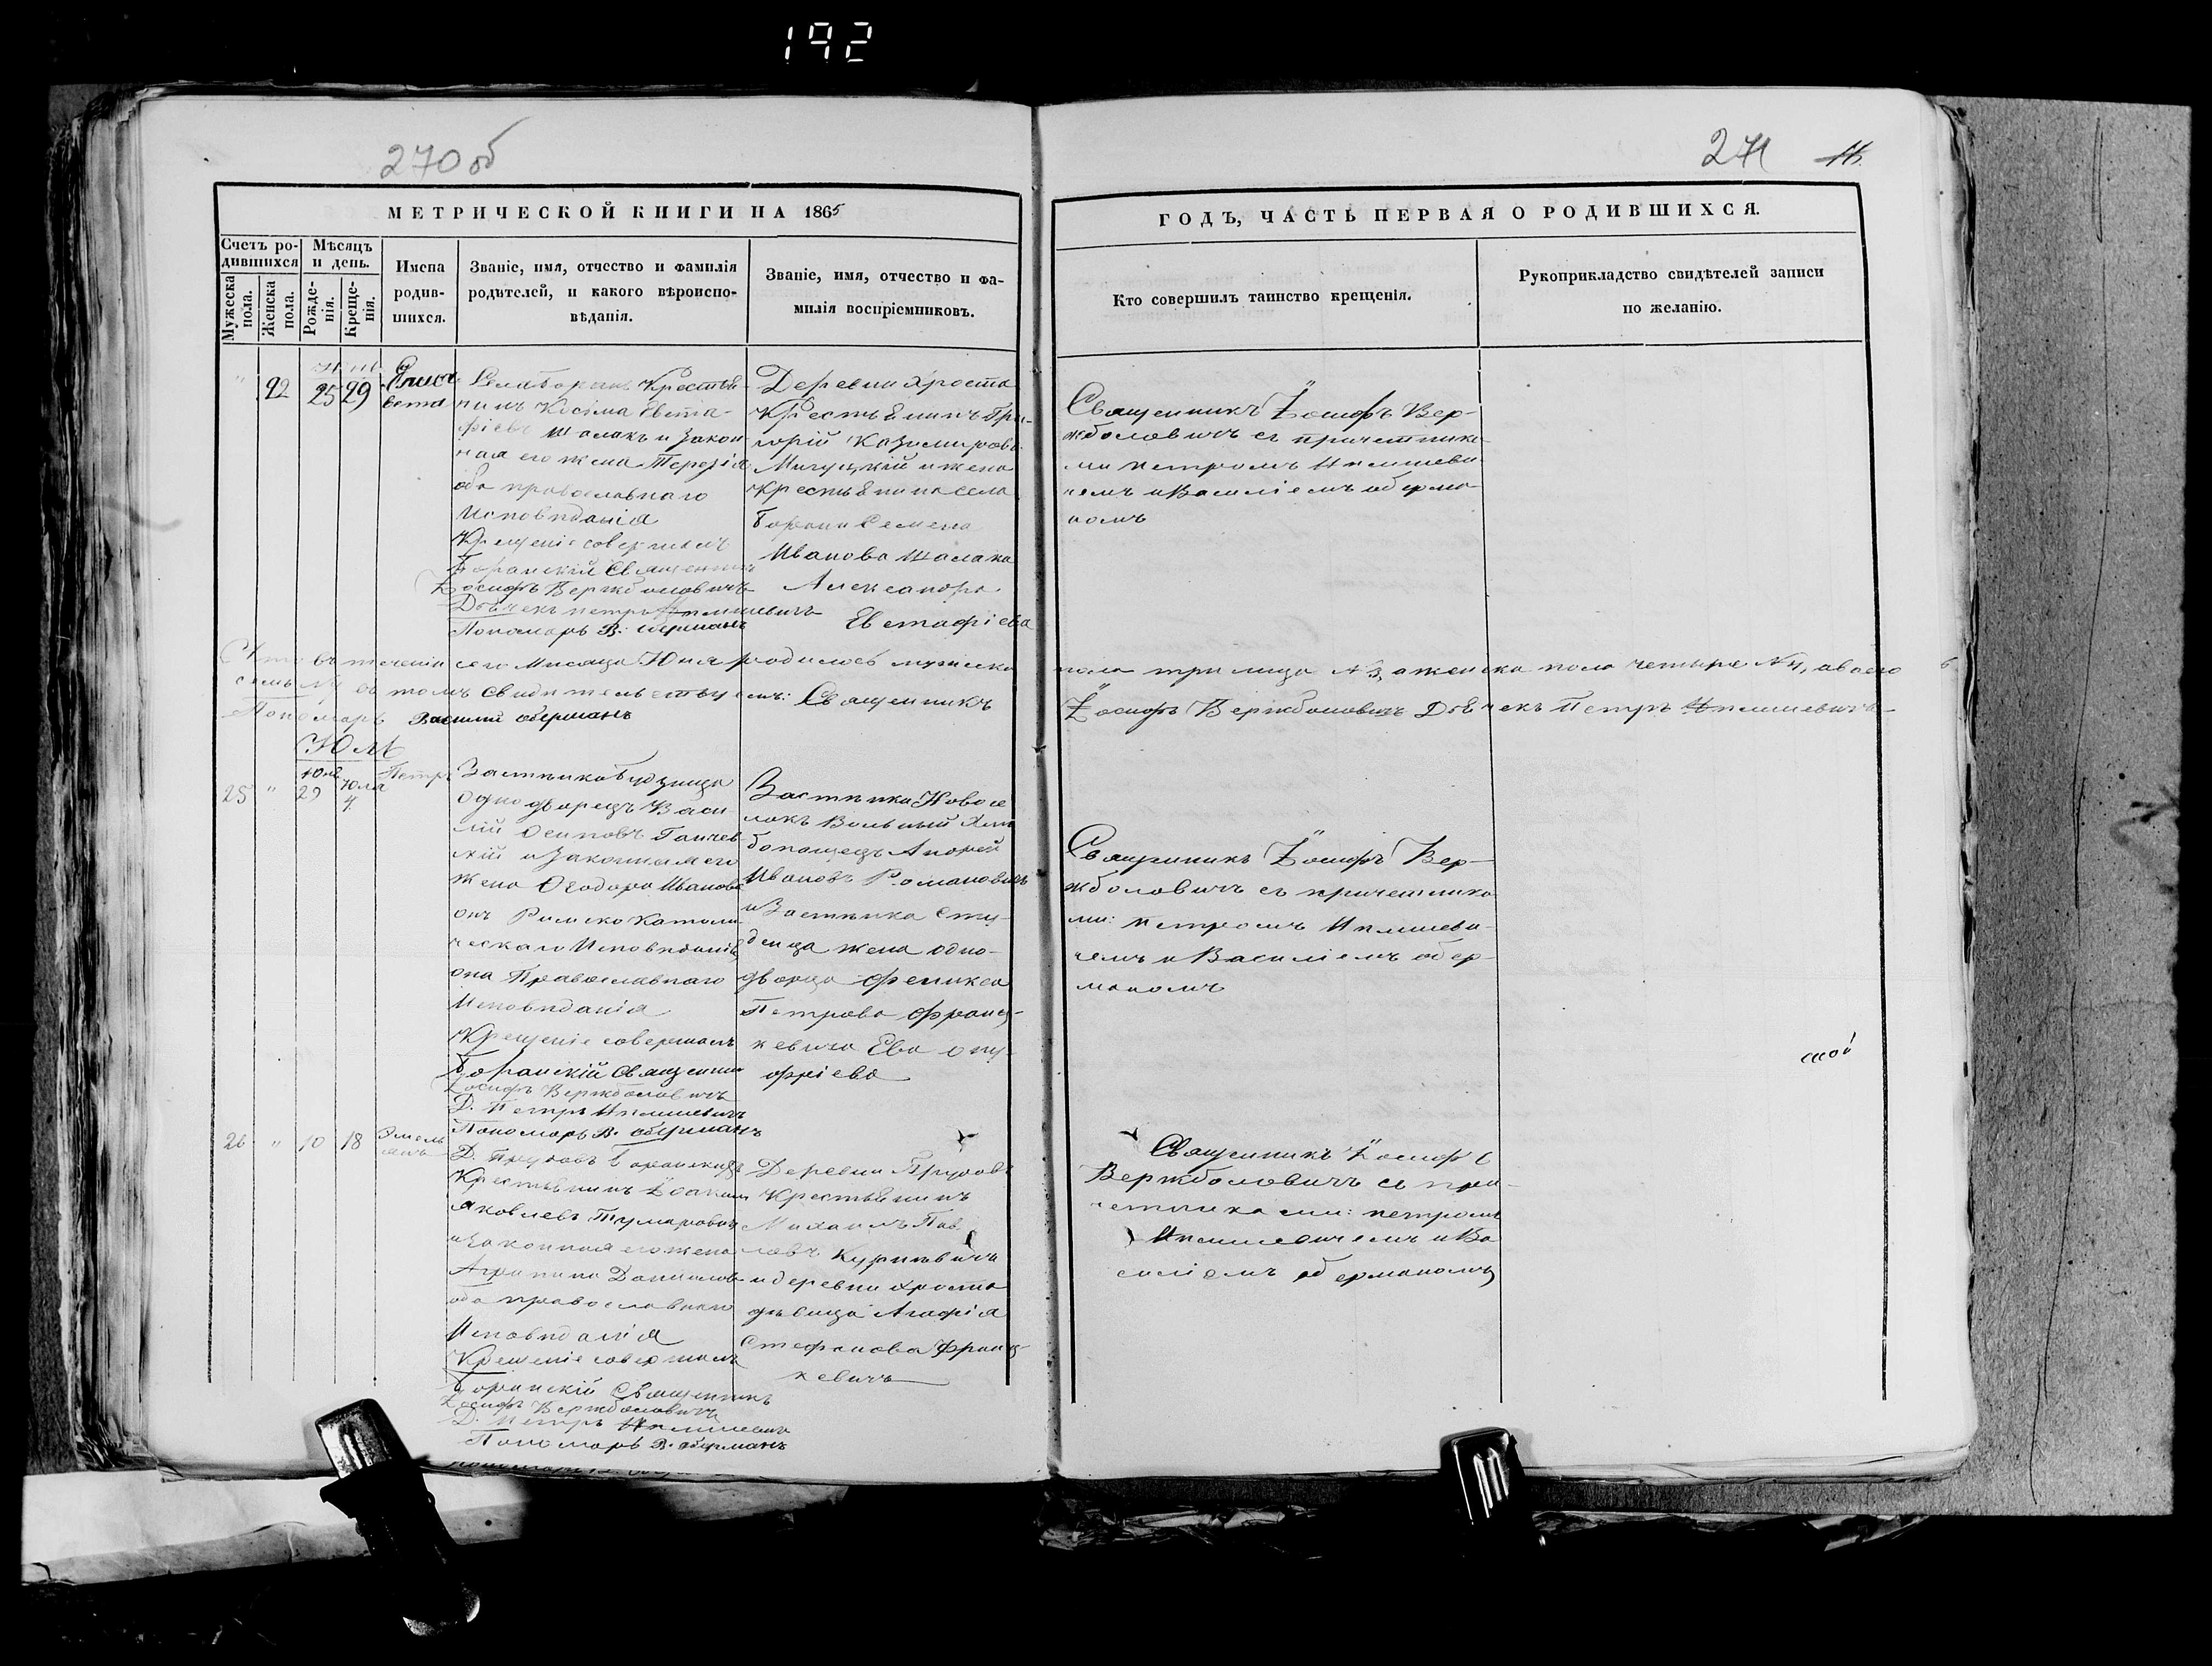 192
270 об
271 11.
МЕТРИЧЕСКОЙ КНИГИ НА 1865
ГОДЪ, ЧАСТЬ ПЕРВАЯ О РОДИВШИХСЯ.
Счетъ ро-
дившихся
Мужеска пола.
Женска пола.
Мѣсяцъ
и день.
Рожде-
нія.
Креще-
нія.
Имена
родив-
шихся.
Званіе, имя, отчество и фамилія
родителей, и какого вѣроиспо-
вѣданія.
Званіе, имя, отчество и фа-
милія воспріемниковъ.
Кто совершилъ таинство крещенія.
Рукоприкладство свидѣтелей записи
по желанію.
" 22 25 29
Елиса
вета
Села Боранъ Крестья-
нинъ Косма Евста-
фіевъ Шалакъ и закон-
ная его жена Терезія
оба православнаго
Исповѣданія
Крещеніе совершилъ
Боранскій Священникъ
Іосифъ Вержболовичъ
Дьячекъ Петръ
Пономарь В. Оберманъ
Деревни Хроста
Крестьянинъ Гри-
горій Казимировъ
и жена
Крестьянина села
Борани Семена
Иванова Шалака
Александра
Евстафіева
Священникъ Іосифъ Вер-
жболовичъ съ причетника-
ми Петромъ
чемъ и Василіемъ Оберма-
номъ
въ теченіи сего Мѣсяца Юня родилось мужеска
пола три лица №3, а женска пола четыре №4, а всего
семь №7 въ томъ свидѣтельствуемъ: Священникъ
Іосифъ Вержболовичъ Дьячекъ Петръ
Пономарь Василій Оберманъ
Юль
25 " Юня 29 Юля 4
Петръ
Застѣнка
однодворецъ Васи
лій Осиповъ
и законная его
жена Ѳеодора Иванова
онъ Римско Католи-
ческаго Исповѣданія
она Православнаго
Исповѣданія
Крещеніе совершилъ
Боранскій Священникъ
Іосифъ Вержболовичъ
Д. Петръ
Пономарь В. Оберманъ
Застѣнка Новосе
локъ Вольный Хлѣ
бопашецъ Андрей
Ивановъ Романовичъ
и Застѣнка Сту-
денца жена одно-
дворца Феликса
Петрова Франц-
кевича Ева Ону-
фріева
Священникъ Іосифъ Вер-
жболовичъ съ причетника
ми: Петромъ
чемъ и Василіемъ Обер-
маномъ
26 " 10 18
Эмель
янъ
Д. Прудовъ Боранскихъ
Крестьянинъ Іоакимъ
Яковлевъ
и законная его жена
Агрипина Данилова
оба православнаго
Исповѣданія
Крещеніе совершилъ
Боранскій Священникъ
Іосифъ Вержболовичъ
Д. Петръ
Пономарь В. Оберманъ
Деревни Прудовъ
Крестьянинъ
Михаилъ Пав
ловъ
и деревни Хроста
дѣвица Агафія
Стефанова Франц-
кевичъ
Священникъ Іосифъ
Вержболовичъ съ при-
четниками: Петромъ
и Ва
силіемъ Оберманомъ